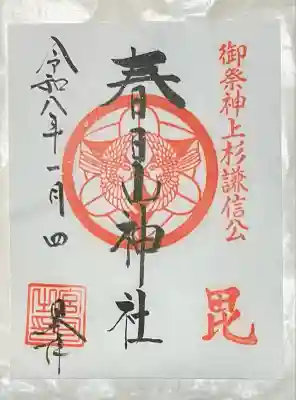 御祭神上杉謙信公
毘
春日山神社
令和八年一月四